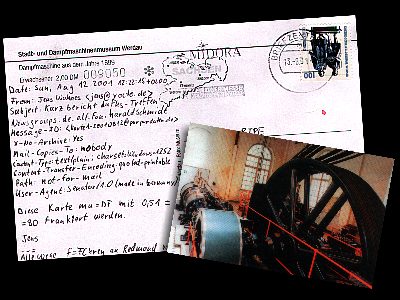 Stadt- und Dampfmaschinenmuseum Werdau
Dampfmaschine aus dem Jahre 1899
Erwachsener 2,00 DM 009050
MIDORA
SACHSEN
BRIEFZENTRUM
100
Date: Sun, Aug 12 2001 17:22:15 +0200
From: Jens
Subject: Kurzbericht dafhs-Treffen
Newsgroups: de.alt.fan.haraldschmidt
Message-ID:
X-No-Archive: Yes
Mail-Copies-To: nobody
Content-Type: text/plain; charset=Windows-1252
Content-Transfer-Encoding: quoted-printable
Path: not-for-mail
User-Agent: Senator/1.0 (made in Germany)
Diese Karte mu=DF mit 0,51 =
=80 frankiert werden.
Jens
---
Alle diese F=FChren an Redmond